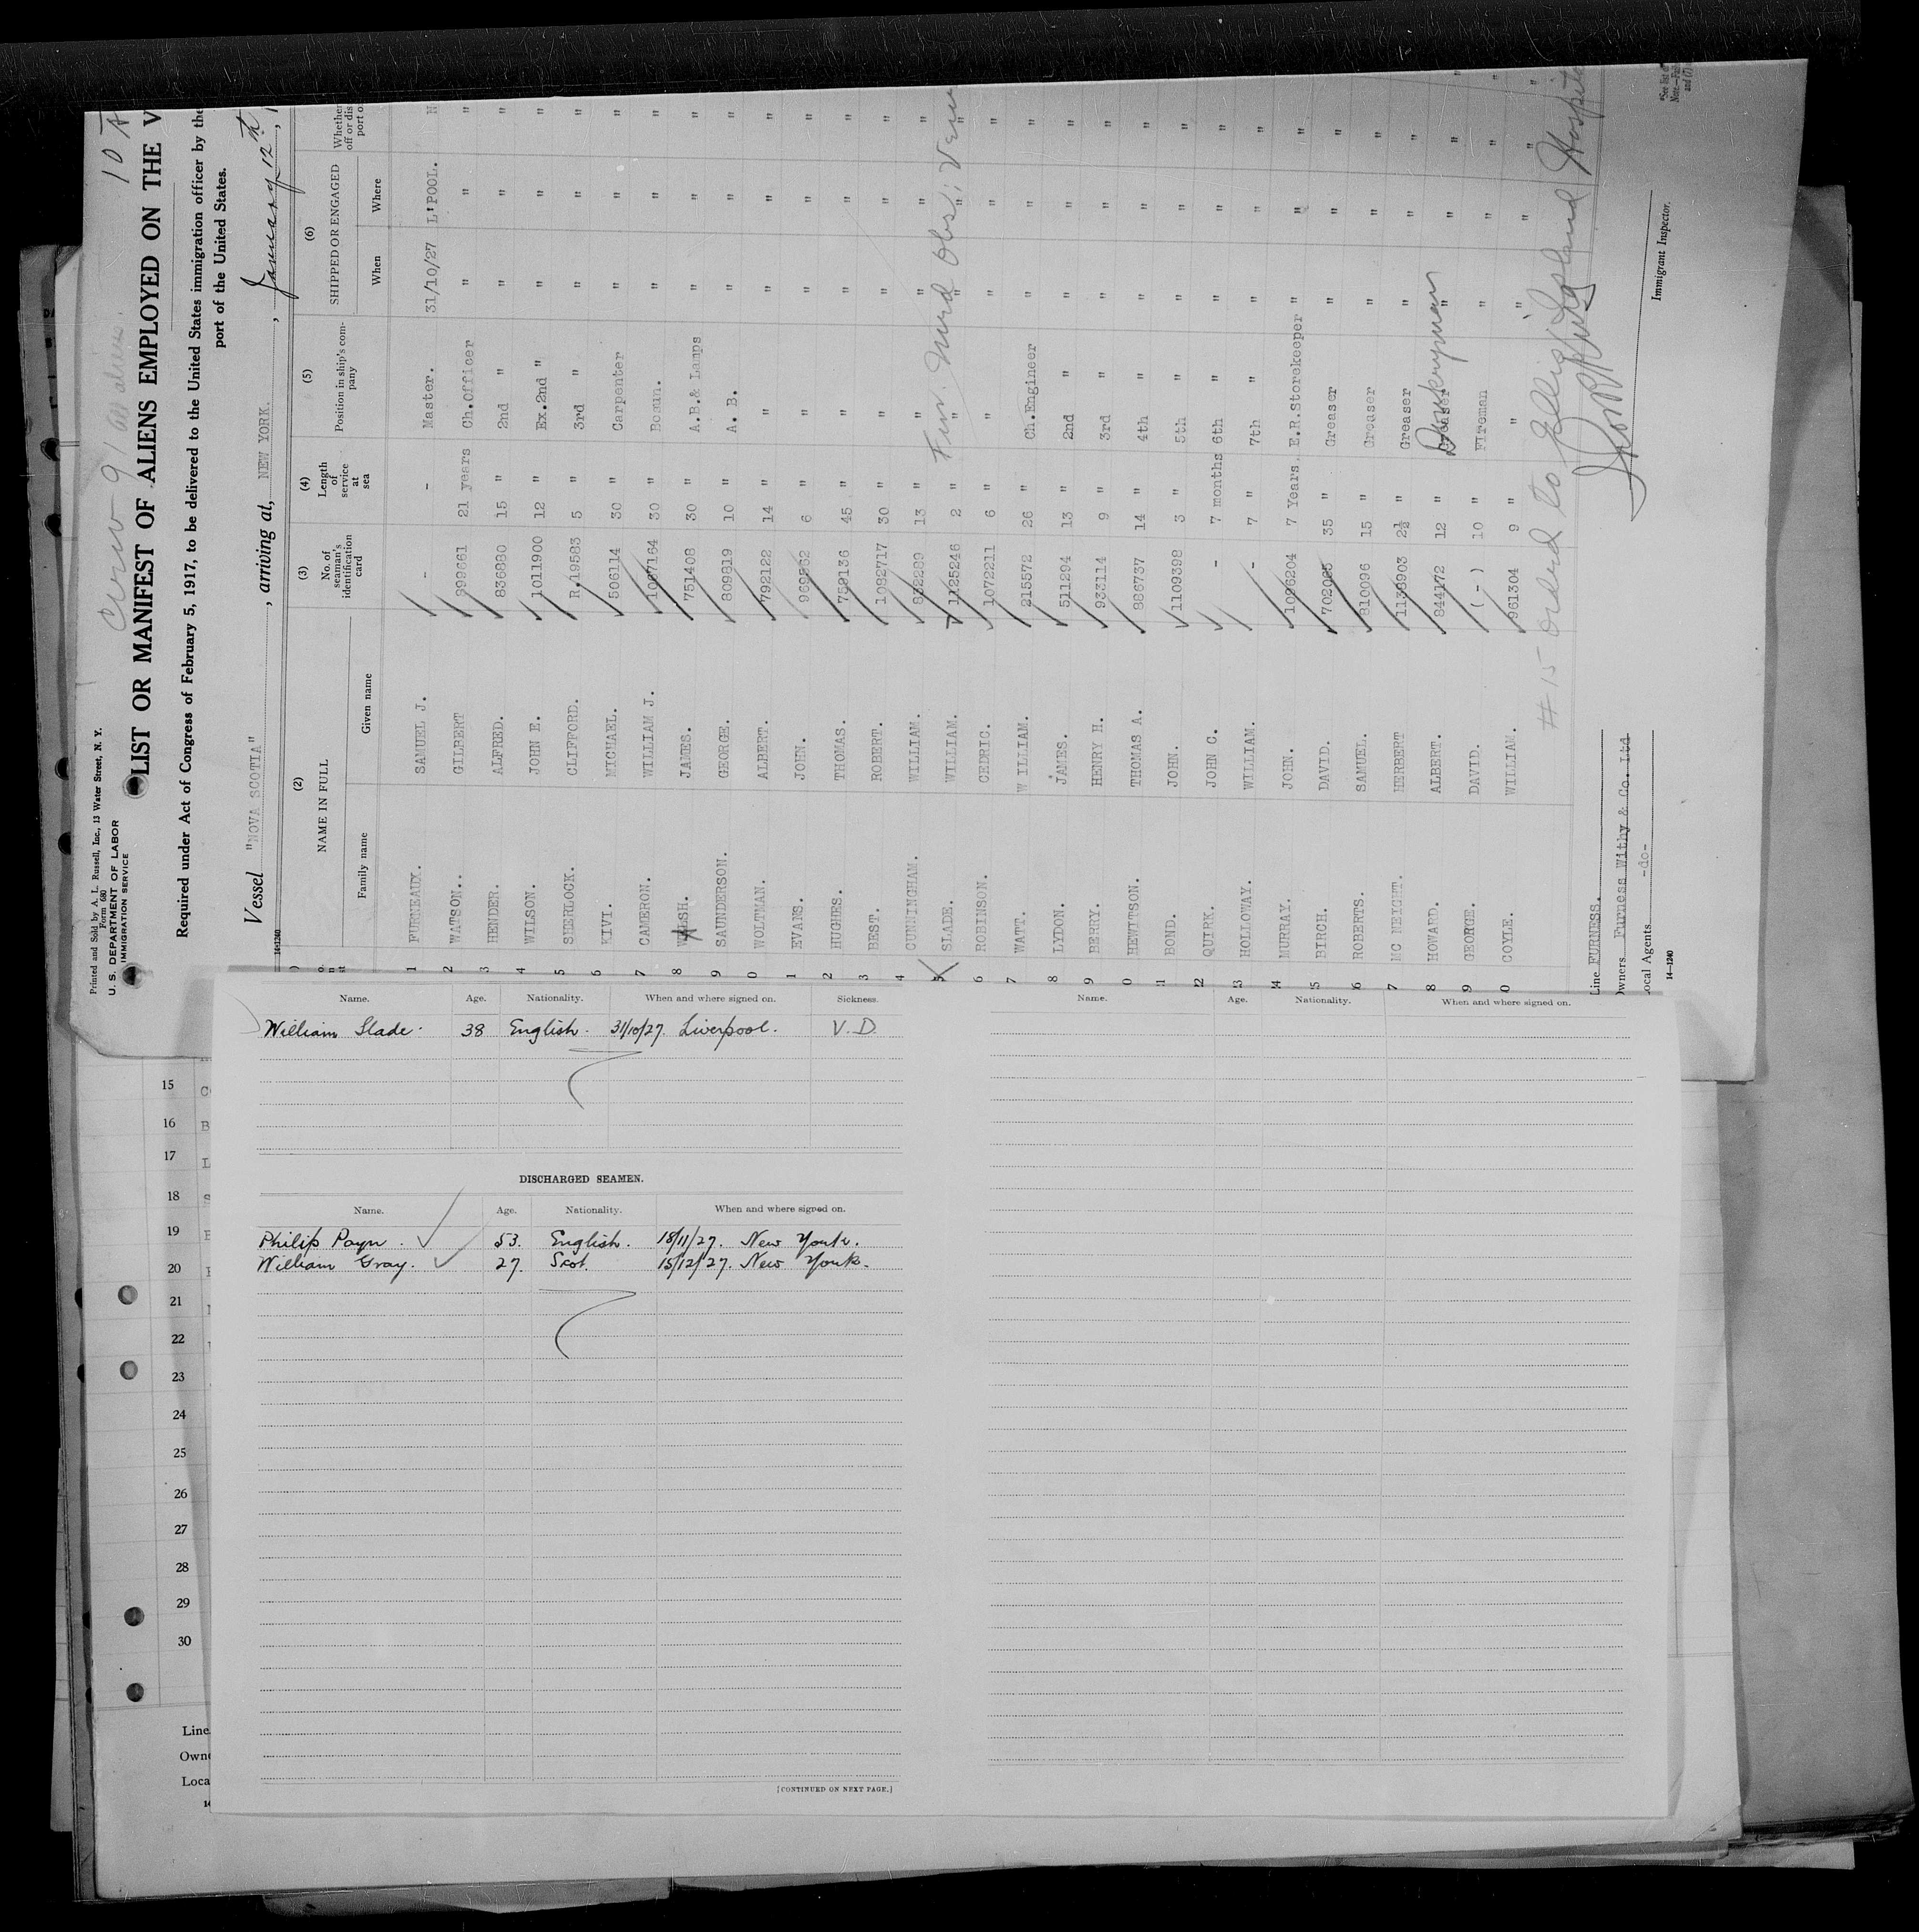 Printed and Sold by A. L. Russell, Inc., 13 Water Street, N. Y.
Form 680
U. S. DEPARTMENT OF LABOR
IMMIGRATION SERVICE
Crew 91 all aliens.
10 A
LIST OR MANIFEST OF ALIENS EMPLOYED ON THE V
Required under Act of Congress of February 5, 1917, to be delivered to the United States immigration officer by the
port of the United States.
Vessel "NOVA SCOTIA" , arriving at, NEW YORK. , January 12th , 1
14-1240
(2) (3) (4) (5) (6)
NAME IN FULL No. of seaman's identification card Length of service at sea Position in ship's company SHIPPED OR ENGAGED Whether
Family name Given name When Where off or dis port o
1 FURNEAUX. SAMUEL J. - - Master. 31/10/27 L'POOL. N
2 WATSON.. GILBERT 899661 21 years Ch.officer " " "
3 HENDER. ALFRED. 836880 15 " 2nd " " " "
4 WILSON. JOHN E. 1011900 12 " Ex.2nd " " " "
5 SHERLOCK. CLIFFORD. R.19583 5 " 3rd " " " "
6 KIVI. MICHAEL. 506114 30 " Carpenter " " "
7 CAMERON. WILLIAM J. 1007164 30 " Bosun. " " "
8 WALSH. JAMES. 751408 30 " A.B.& Lamps " " "
9 SAUNDERSON. GEORGE. 809819 10 " A. B. " " "
0 WOLTMAN. ALBERT. 792122 14 " " " " "
1 EVANS. JOHN. 6 " " " " "
2 HUGHES. THOMAS. 759136 45 " " " " "
3 BEST. ROBERT. 1082717 30 " " " " "
4 CUNNINGHAM. WILLIAM. 832289 13 " " " " "
5 SLADE. WILLIAM. 1125246 2 " " " " "
6 ROBINSON. CEDRIC. 1072211 6 " " " " "
7 WATT. WILLIAM. 215572 26 " Ch.Engineer " " "
8 LYDON. JAMES. 511294 13 " 2nd " " " "
9 BERRY. HENRY H. 933114 9 " 3rd " " " "
0 HEWITSON. THOMAS A. 886737 14 " 4th " " " "
1 BOND. JOHN. 1109398 3 " 5th " " " "
22 QUIRK. JOHN C. - 7 months 6th " " " "
3 HOLLOWAY. WILLIAM. - 7 " 7th " " " "
24 MURRAY. JOHN. 1096204 7 Years. E.R.Storekeeper " " "
5 BIRCH. DAVID. 35 " Greaser " " "
6 ROBERTS. SAMUEL. 810096 15 " Greaser " " "
7 MC NEIGHT. HERBERT 1138903 2½ " Greaser " " "
8 HOWARD. ALBERT. 844172 12 " Donkeyman " " "
9 GEORGE. DAVID. ( - ) 10 " Fireman " " "
0 COYLE. WILLIAM. 961304 9 " " " " "
#15 ord to Ellis Island Hospital
Line FURNESS.
Owners Furness Withy & Co. Ltd
Local Agents -do-
14-1240
Immigrant Inspector.
Name. Age. Nationality. When and where signed on. Sickness.
William Slade. 38 English. 31/10/27. Liverpool. V. D.
DISCHARGED SEAMEN.
Name. Age. Nationality. When and where signed on.
Philip Payn. 53. English. 18/11/27. New York.
William Gray. 27. Scot. 15/12/27. New York.
[CONTINUED ON NEXT PAGE.]
Name. Age. Nationality. When and where signed on.
15
16
17
18
19
20
21
22
23
24
25
26
27
28
29
30
Line
Own
Loca